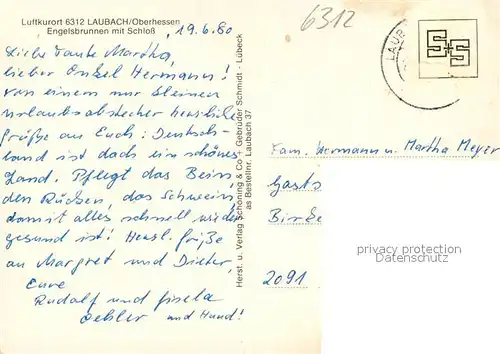 Luftkurort 6312 LAUBACH/Oberhessen
Engelsbrunnen mit Schloß
19.6.80
Liebe Tante Martha,
lieber Onkel Hermann!
Von einem nur kleinen
Urlaubsabstecher herzliche
Grüße an Euch. Deutsch-
land ist doch ein schönes
Land. Pflegt das Bein,
den Rücken, das Schwein,
damit alles schnell wieder
gesund ist! Herzl. Grüße
an Margret und Dieter,
Eure
Rudolf und Gisela
und Hund!
Herst. u. Verlag Schöning & Co + Gebrüder Schmidt · Lübeck
as Bestellnr. Laubach 37
6312
LAUB
S+S
Fam. Hermann u. Martha Meyer
Gasts
Birke
2091
privacy protection
Datenschutz